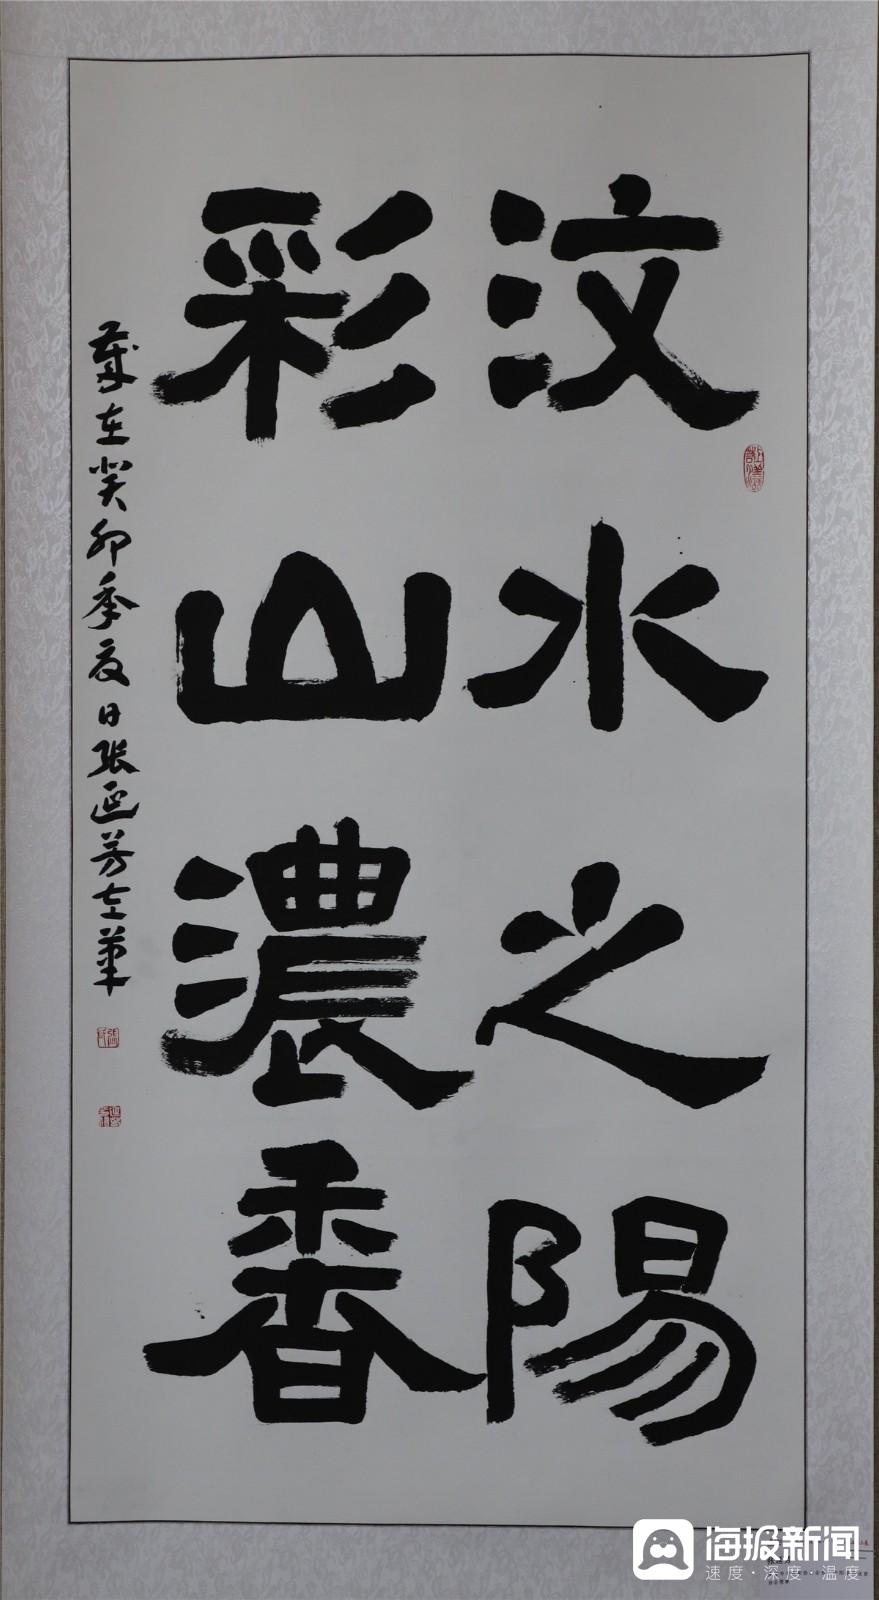 汶水之陽
彩山濃香
歲在癸卯季夏日張延芳左筆
海报新闻
速度·深度·温度